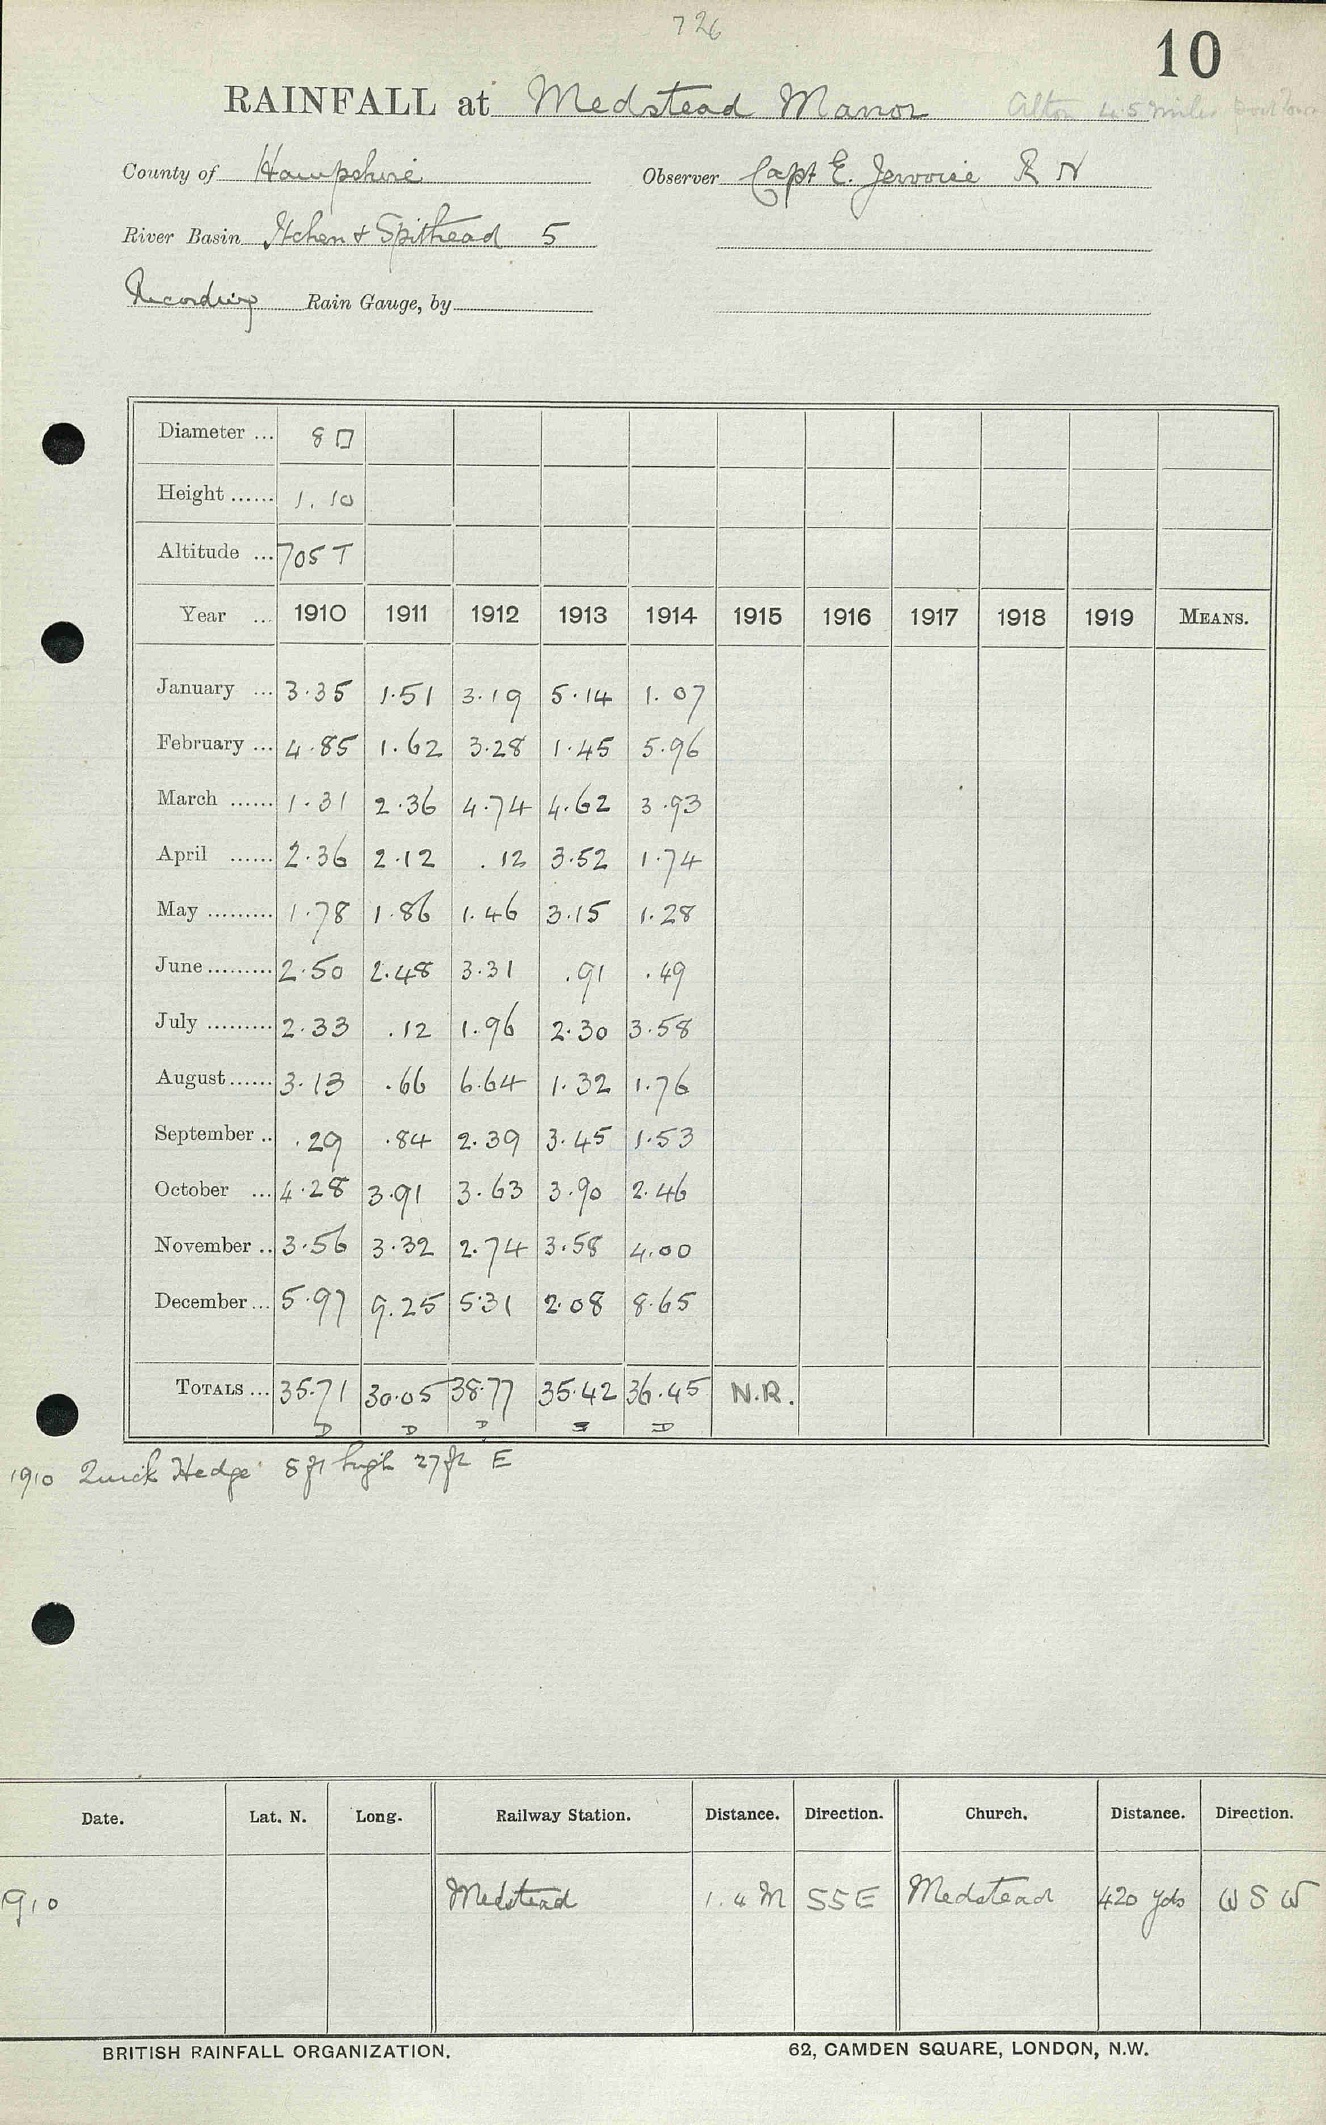 726
10
RAINFALL at Medstead Manor Alton 4.5 miles post town
County of Hampshire Observer Capt E. Jervoise R N
River Basin Itchen & Spithead 5
Recording Rain Gauge, by
Diameter ... 8 □
Height ...... 1. 10
Altitude ... 705 T
Year ... 1910 1911 1912 1913 1914 1915 1916 1917 1918 1919 MEANS.
January ... 3.35 1.51 3.19 5.14 1.07
February ... 4.85 1.62 3.28 1.45 5.96
March ...... 1.31 2.36 4.74 4.62 3.93
April ...... 2.36 2.12 .12 3.52 1.74
May ......... 1.78 1.86 1.46 3.15 1.28
June ......... 2.50 2.48 3.31 .91 .49
July ......... 2.33 .12 1.96 2.30 3.58
August ...... 3.13 .66 6.64 1.32 1.76
September .. .29 .84 2.39 3.45 1.53
October ... 4.28 3.91 3.63 3.90 2.46
November .. 3.56 3.32 2.74 3.58 4.00
December ... 5.97 9.25 5.31 2.08 8.65
TOTALS ... 35.71 30.05 38.77 35.42 36.45 N.R.
D D D D
1910 Quick Hedge 8 ft high 27 ft E
Date. Lat. N. Long. Railway Station. Distance. Direction. Church. Distance. Direction.
1910 Medstead 1.4 M SSE Medstead 420 yds W S W
BRITISH RAINFALL ORGANIZATION. 62, CAMDEN SQUARE, LONDON, N.W.